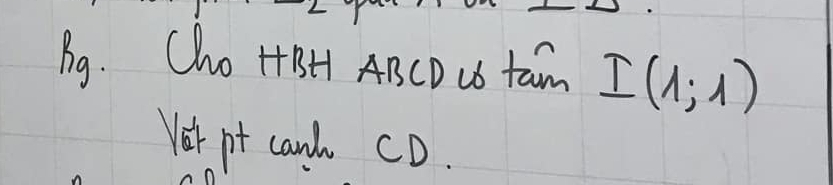 B9. Cho HBH ABCD có tâm I(1;1)
Viết pt cạnh CD.